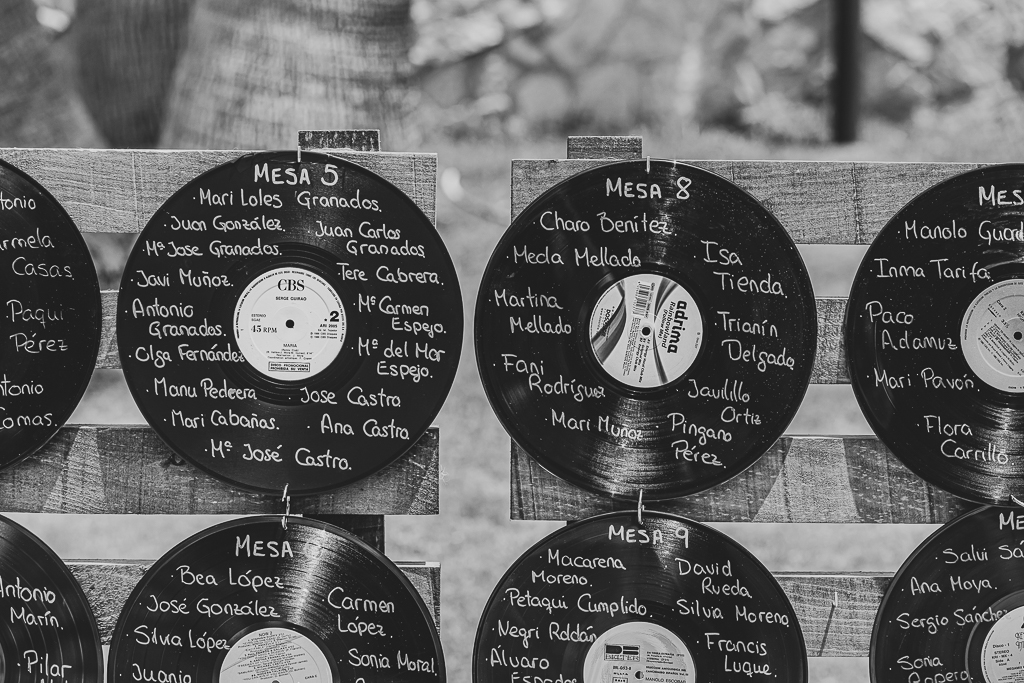 ntonio
Casas.
Paqui
Pérez
ntonio
MESA 5
Mari Loles Granados.
Juan González.
Juan Carlos
Granados
Mª Jose Granados.
Javi Muñoz.
Tere Cabrera.
Antonio
Granados.
Mª Carmen
Espejo.
Olga Fernández
Mª del Mar
Espejo.
Manu Pedeera
Jose Castro
Mari Cabañas.
Ana Castro
Mª José Castro.
CBS
SERGE GUIRAO
45 RPM
2
MARIA
MESA 8
Charo Benítez.
Mecla Mellado
Isa
Tienda.
Martina
Mellado
Trianín
Delgado
Fani
Rodríguez
Javilillo
Ortiz
Mari Muñoz
Pingano
Pérez.
adrima
Rainbowland
MES
Manolo Guar
Inma Tarifa.
Paco
Adamuz
Mari Pavón.
Flora
Carrillo
Antonio
Marín.
Pilar
MESA
Bea López
José González
Carmen
López.
Silva López
Sonia Moral
Juanio
MESA 9
Macarena
Moreno.
David
Rueda
Petaqui Cumplido.
Silvia Moreno
Negri Roldán
Francis
Luque.
Álvaro
MANOLO ESCOBAR
ME
Salvi Sá
Ana Moya
Sergio Sánchez
Sonia